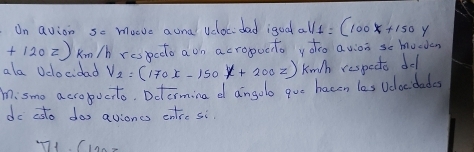 Un avion se mueve a una velocidad igual a V1 = (100 x + 150 y
+ 120 z) Km/h respecto a un aeropuerto y otro avion se mueven
a la Velocidad V2 = (170 x - 150 y + 200 z) Km/h respecto del
mismo aeropuerto. Determina el ángulo que hacen las Velocidades
de esto dos aviones entre si.